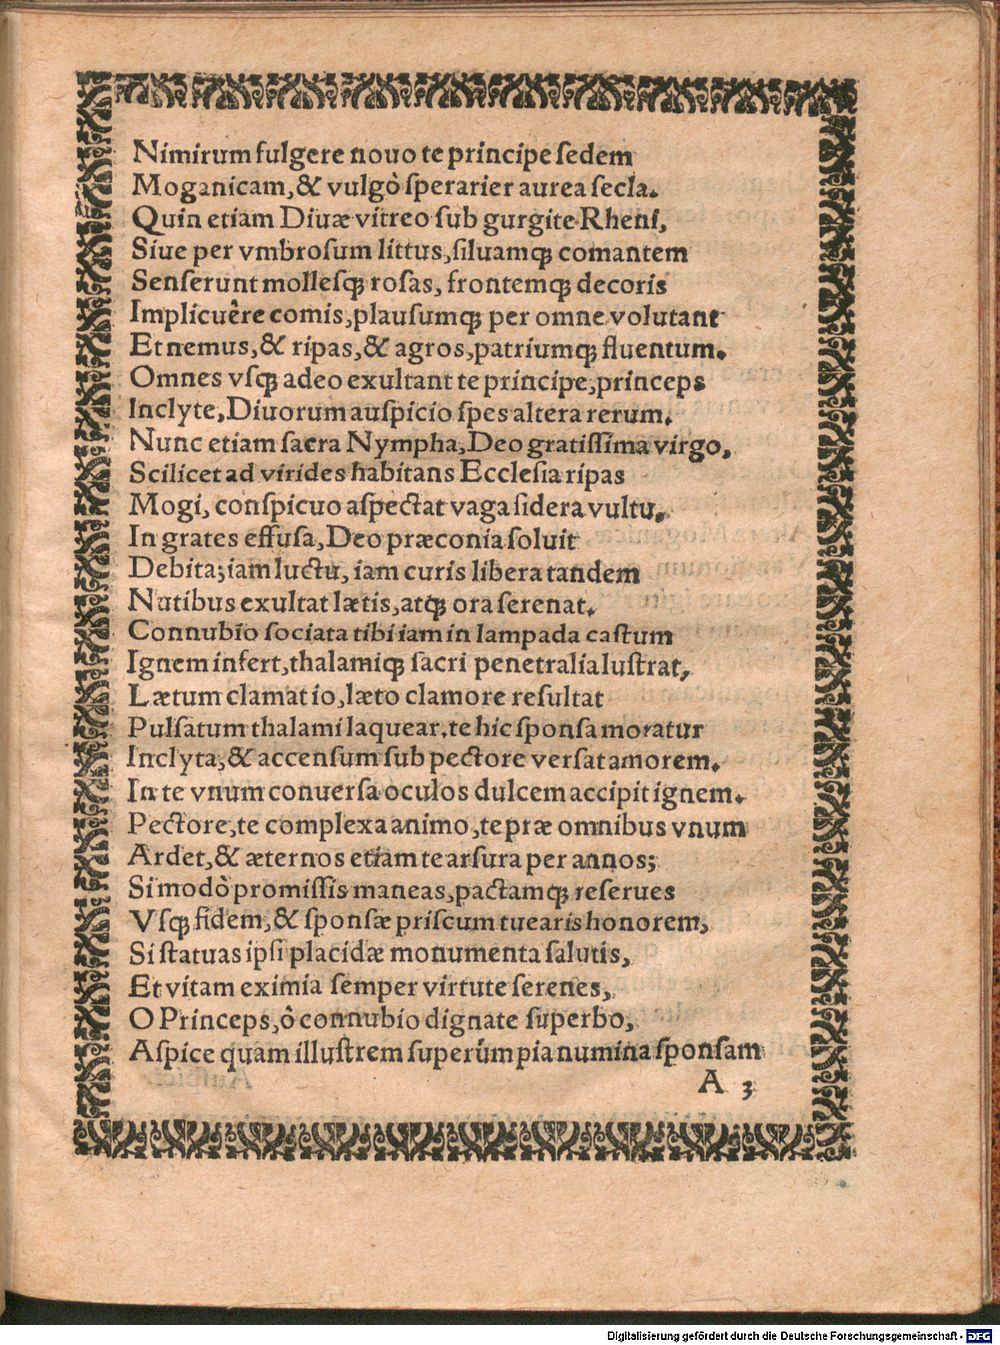 Nimirum fulgere nouo te principe ſedem
Moganicam, & vulgò ſperarier aurea ſecla.
Quin etiam Diuæ vitreo ſub gurgite Rheni,
Siue per vmbroſum littus, ſiluamꝗ comantem
Senſerunt mollesꝗ roſas, frontemꝗ decoris
Implicuêre comis, plauſumꝗ per omne volutant
Et nemus, & ripas, & agros, patriumꝗ fluentum.
Omnes vſꝗ adeo exultant te principe, princeps
Inclyte, Diuorum auſpicio ſpes altera rerum.
Nunc etiam ſacra Nympha, Deo gratiſſima virgo,
Scilicet ad virides habitans Eccleſia ripas
Mogi, conſpicuo aſpectat vaga ſidera vultu.
In grates effuſa, Deo præconia ſoluit
Debita; iam luctu, iam curis libera tandem
Natibus exultat lætis, atꝗ ora ſerenat.
Connubio ſociata tibi iam in lampada caſtum
Ignem infert, thalamiꝗ ſacri penetralia luſtrat,
Lætum clamat io, læto clamore reſultat
Pulſatum thalami laquear. te hic ſponſa moratur
Inclyta, & accenſum ſub pectore verſat amorem.
In te vnum conuerſa oculos dulcem accipit ignem.
Pectore, te complexa animo, te præ omnibus vnum
Ardet, & æternos etiam te arſura per annos;
Si modò promiſſis maneas, pactamꝗ reſerues
Vſꝗ fidem, & ſponſæ priſcum tuearis honorem,
Si ſtatuas ipſi placidæ monumenta ſalutis,
Et vitam eximia ſemper virtute ſerenes,
O Princeps, ô connubio dignate ſuperbo,
Aſpice quam illuſtrem ſuperûm pia numina ſponſam
A 3
Digitalisierung gefördert durch die Deutsche Forschungsgemeinschaft - DFG